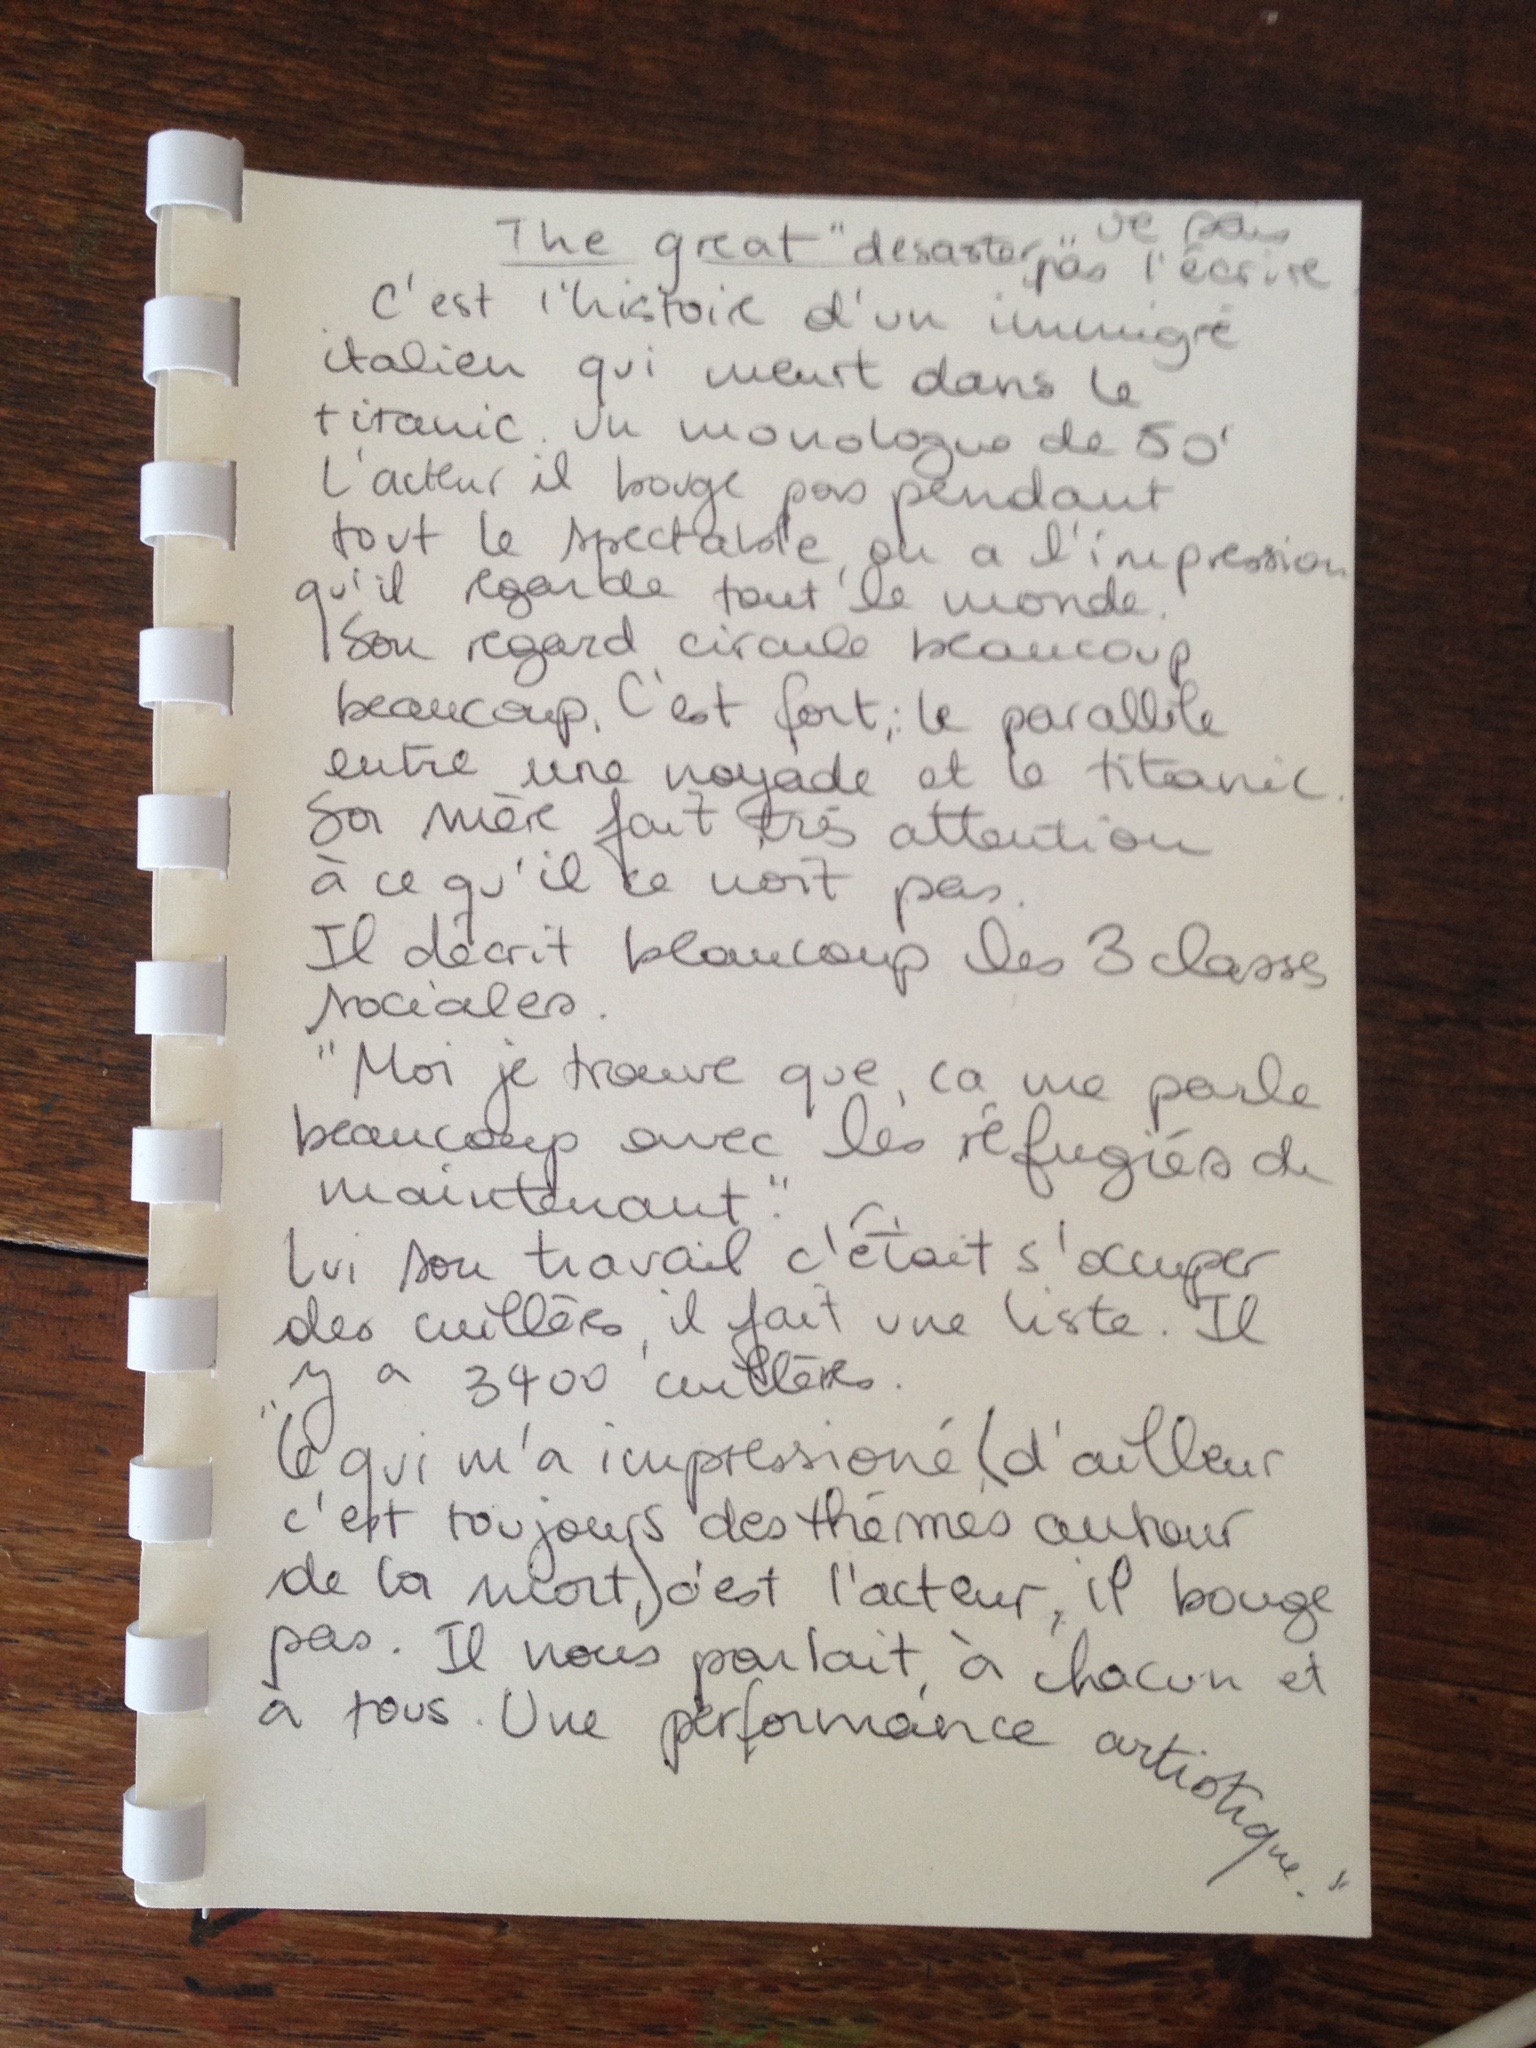 The great "desaster" je sais
pas l'écrire
C'est l'histoire d'un immigré
italien qui meurt dans le
titanic. Un monologue de 50'
L'acteur il bouge pas pendant
tout le spectable, on a l'impression
qu'il regarde tout le monde.
Son regard circule beaucoup
beaucoup. C'est fort, : le parallèle
entre une noyade et le titanic.
Sa mère fait très attention
à ce qu'il ce noit pas.
Il décrit beaucoup les 3 classes
sociales.
"Moi je trouve que, ca me parle
beaucoup avec les réfugiés de
maintenant".
Lui son travail c'était s'occuper
des cuillères, il fait une liste. Il
y a 3400 cuillères.
"Ce qui m'a impressioné (d'ailleur
c'est toujours des thémes autour
de la mort,) c'est l'acteur, il bouge
pas. Il nous parlait, à chacun et
a tous. Une performance artistique."